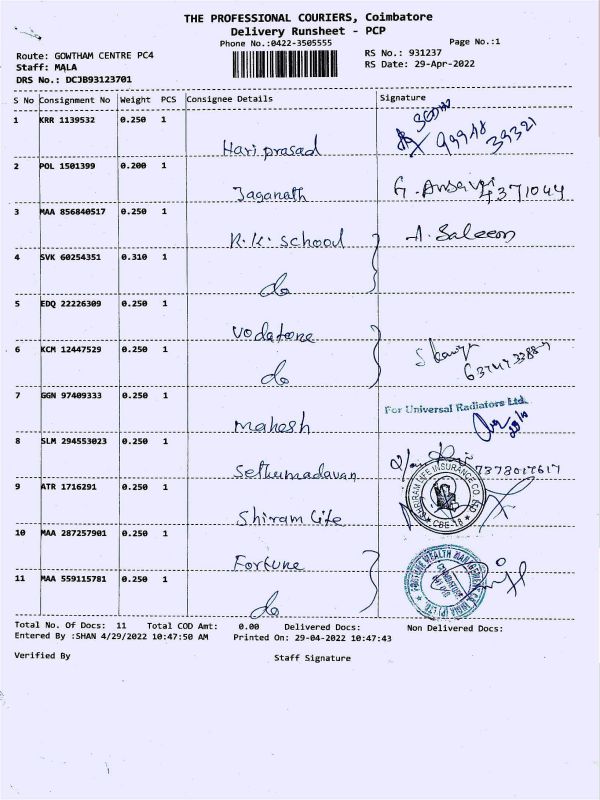 THE PROFESSIONAL COURIERS, Coimbatore
Delivery Runsheet - PCP
Phone No.:0422-3505555
Page No.:1
Route: GOWTHAM CENTRE PC4
RS No.: 931237
Staff: MALA
RS Date: 29-Apr-2022
DRS No.: DCJB93123701
S No Consignment No Weight PCS Consignee Details Signature
1 KRR 1139532 0.250 1
Hari prasad 99948 39321
2 POL 1501399 0.200 1
Jaganath
3 MAA 856840517 0.250 1
R.K. School A. Saleem
4 SVK 60254351 0.310 1
do
5 EDQ 22226309 0.250 1
Vodafone
6 KCM 12447529 0.250 1
do
7 GGN 97409333 0.250 1
For Universal Radiators Ltd.
Mahesh
8 SLM 294553023 0.250 1
Sethumadavan 7373017617
9 ATR 1716291 0.250 1
Shiram Life
LIFE INSURANCE CO. LTD
CBE-18
10 MAA 287257901 0.250 1
Fortune
11 MAA 559115781 0.250 1
do
Total No. Of Docs: 11 Total COD Amt: 0.00 Delivered Docs: Non Delivered Docs:
Entered By :SHAN 4/29/2022 10:47:50 AM Printed On: 29-04-2022 10:47:43
Verified By Staff Signature